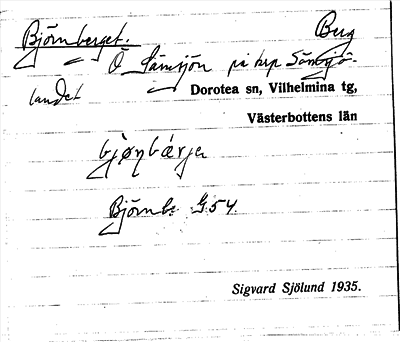 Björnberget. Berg
Ö Sämsjön på krp Sämsjö-
landet
Dorotea sn, Vilhelmina tg,
Västerbottens län
bjønbárje
Björnb. G54
Sigvard Sjölund 1935.